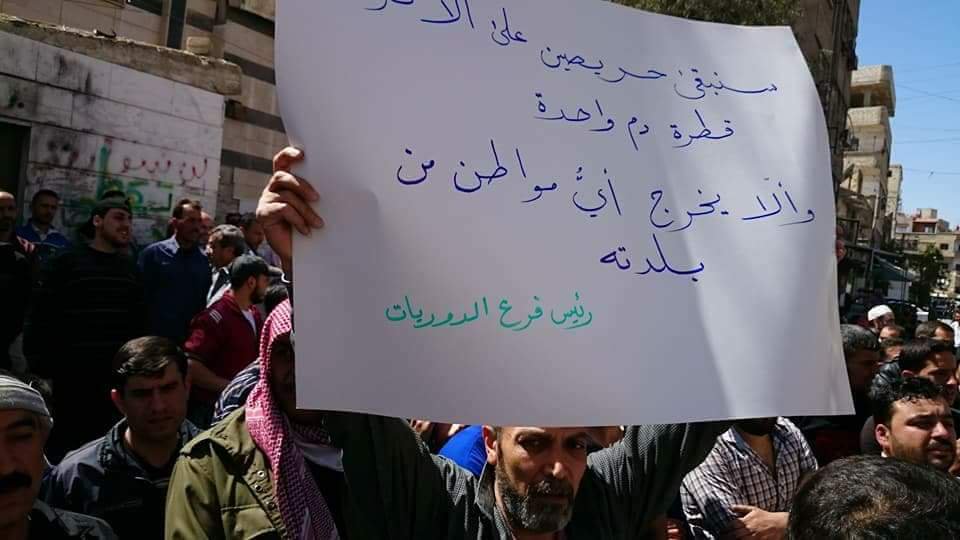 سنبقى حريصين على ألا
قطرة دم واحدة
وألّا يخرج أيُّ مواطن من
بلدته
رئيس فرع الدوريات